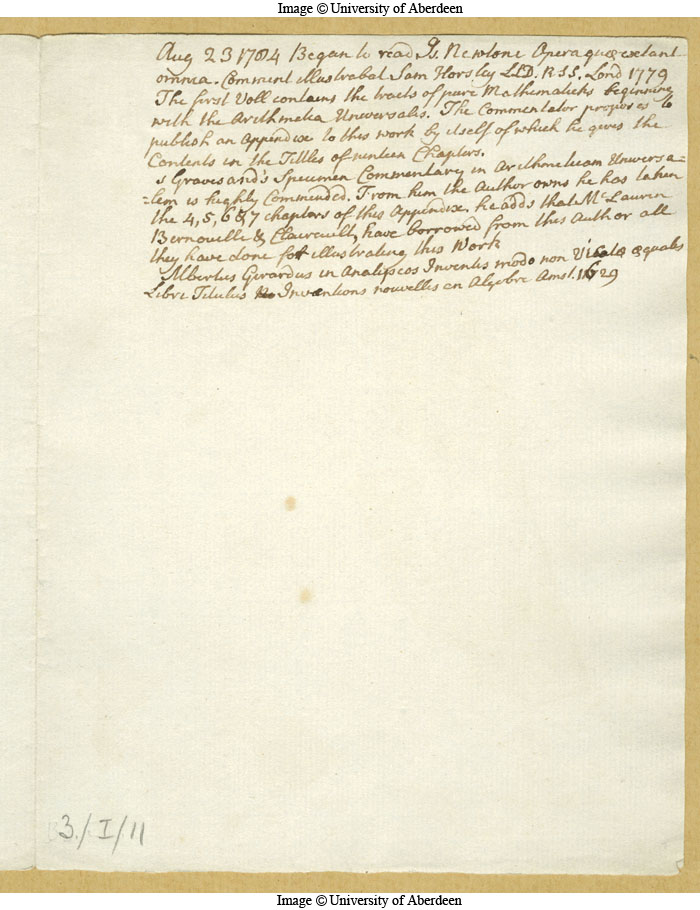 Image © University of Aberdeen
Aug 23 1784 Began to read Is. Newtone Opera quæ extant
omnia. Comment illustrabat Sam Horsley LLD. R.S.S. Lond 1779
The first Voll contains the tracts of pure Mathematicks beginning
with the Arithmetica Universalis. The Commentator proposes to
publish an Appendix to this work by itself of which he gives the
Contents in the Tittles of ninteen Chapters.
s Gravesand's Specimen Commentary in Arithmeticam Universa-
-lem is highly Commended. From him the Author owns he has taken
the 4, 5, 6 & 7 chapters of this Appendix. he adds that McLaurin
Bernouilli & Clairault, have borrowed from this Author all
they have done for illustrating this Work
Albertus Girardus in Analyseos Inventis modo non Vietæ æqualis
Libri Titulus Inventions nouvelles en Algebre Amst. 1629
3./I/11
Image © University of Aberdeen